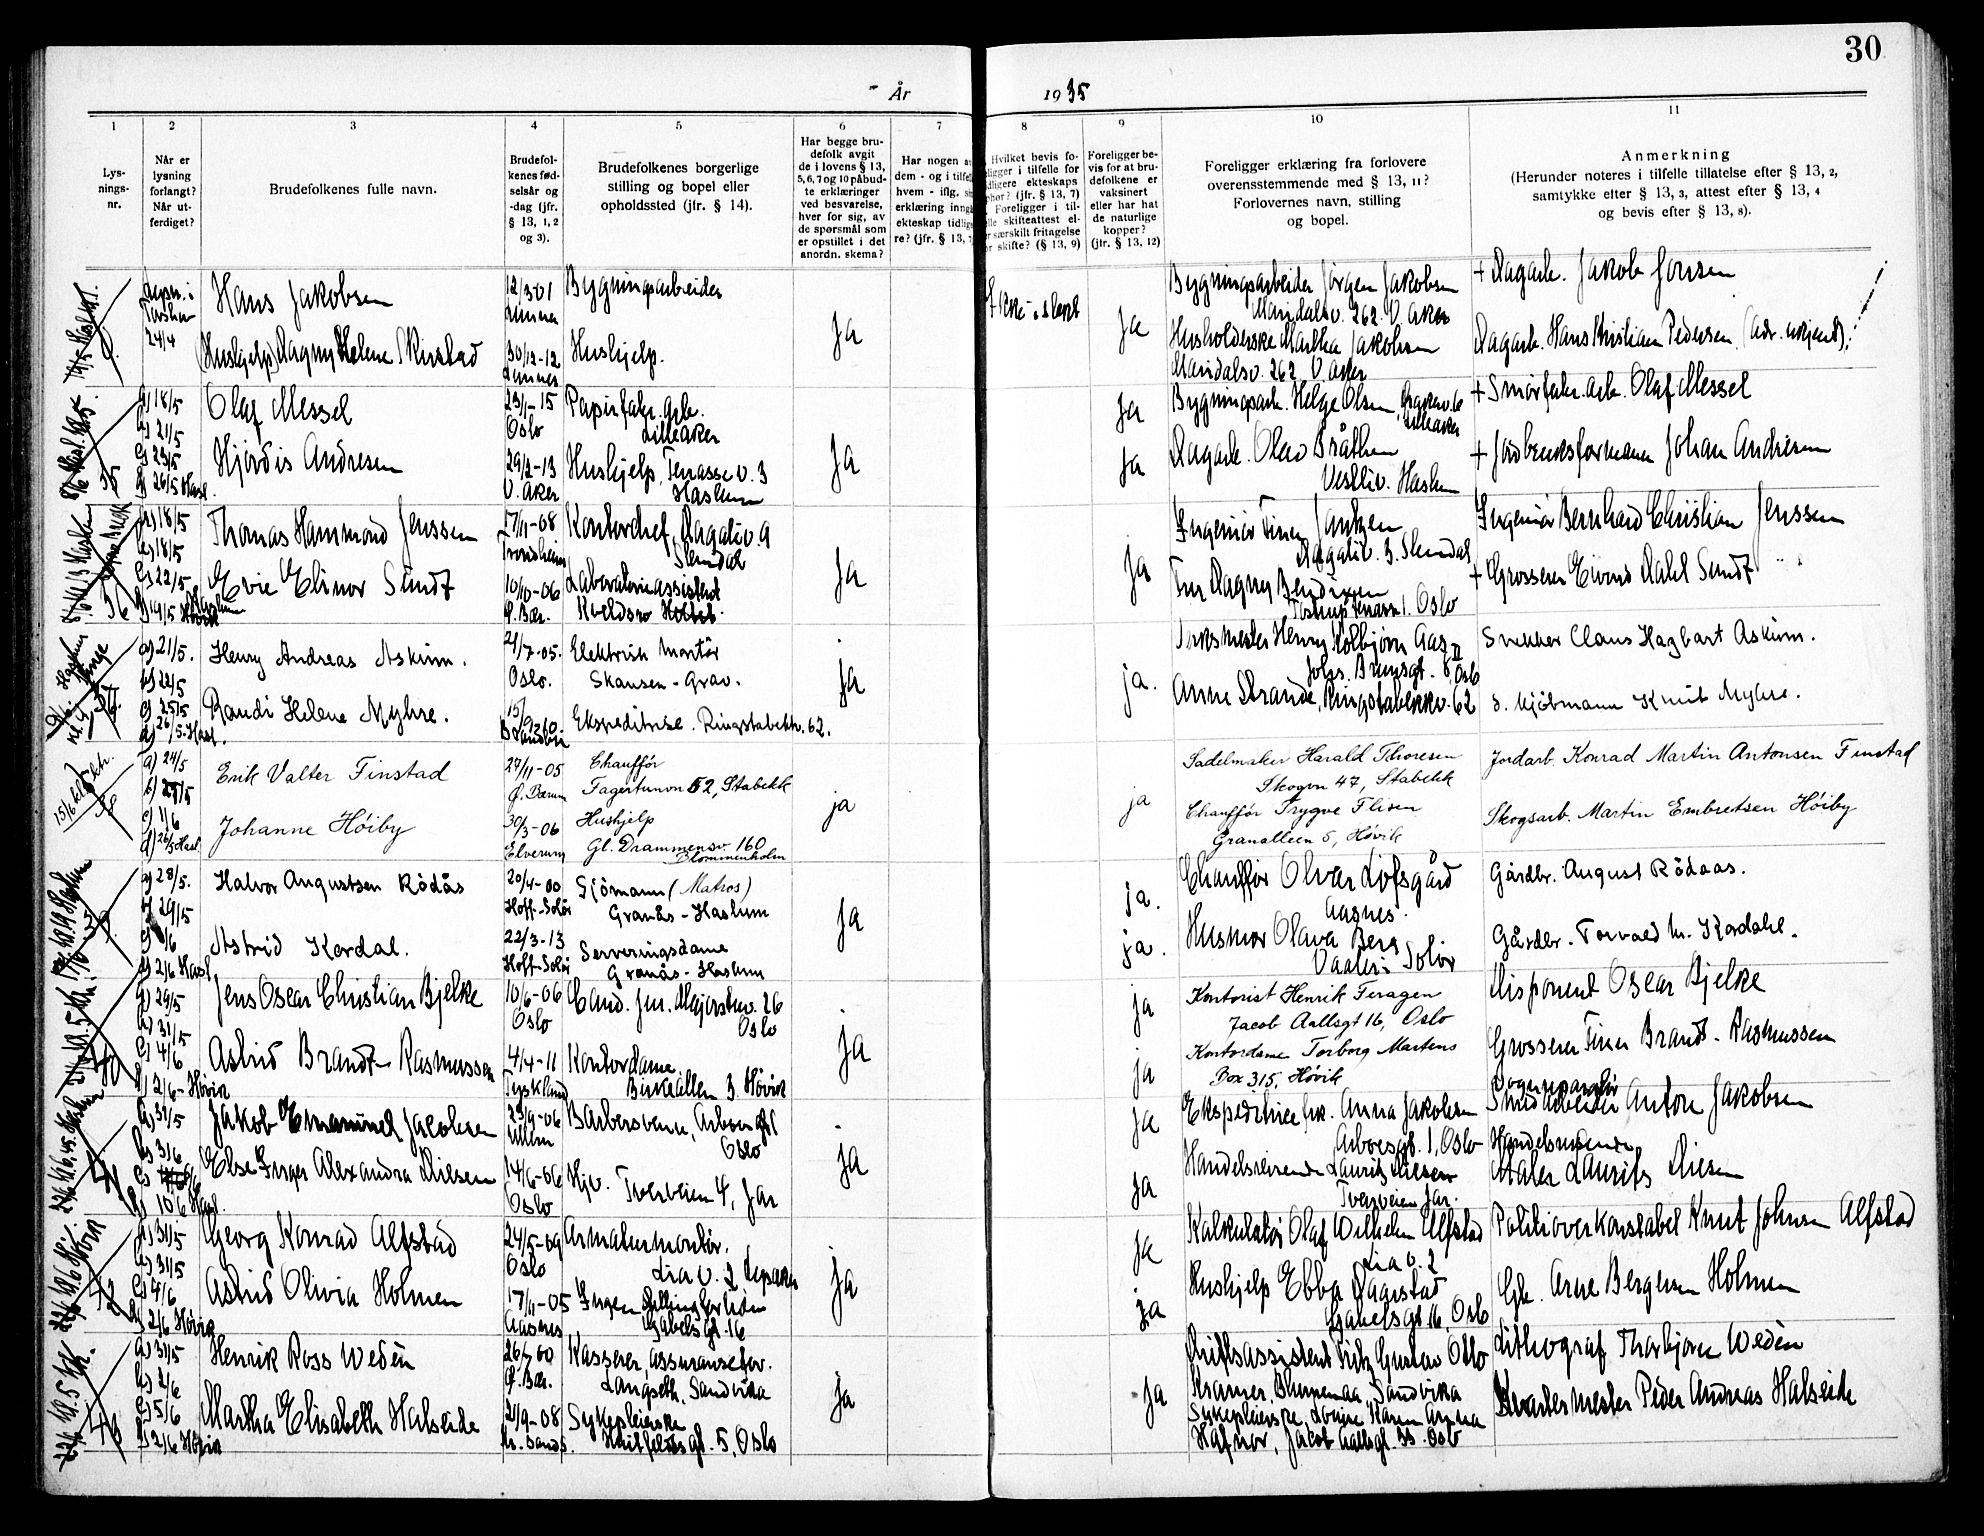 30
År 1935
1 2 3 4 5 6 7 8 9 10 11
Lys-
nings-
nr.
Når er
lysning
forlangt?
Når ut-
ferdiget?
Brudefolkenes fulle navn.
Brudefol-
kenes fød-
selsår og
-dag (jfr.
§ 13, 1, 2
og 3).
Brudefolkenes borgerlige
stilling og bopel eller
opholdssted (jfr. § 14).
Har begge bru-
defolk avgit
de i lovens § 13,
5, 6, 7 og 10 påbud-
te erklæringer
ved besvarelse,
hver for sig, av
de spørsmål som
er opstillet i det
anordn. skema?
Har nogen a
dem - og i tilfe
hvem - iflg.
erklæring inngå
ekteskap tidlig
re? (jfr. § 13,
Hvilket bevis fo-
ligger i tilfelle for
dligere ekteskaps
phør? (jfr. § 13, 7)
Foreligger i til-
elle skifteattest el-
r særskilt fritagelse
or skifte? (§ 13, 9)
Foreligger be-
vis for at bru-
defolkene er
vaksinert
eller har hat
de naturlige
kopper?
(jfr. § 13, 12)
Foreligger erklæring fra forlovere
overensstemmende med § 13, 11?
Forlovernes navn, stilling
og bopel.
Anmerkning
(Herunder noteres i tilfelle tillatelse efter § 13, 2,
samtykke efter § 13, 3, attest efter § 13, 4
og bevis efter § 13, 8).
24/4
Hans Jakobsen
12/3-01
Bygningsarbeider
Ja
Ikke i slekt
Ja
Bygningsarbeider Jørgen Jakobsen
Maridalsv. 262. V. Aker
+ Dagarb. Jakob Jonsen
(Hushjelp) Dagny Helene Kirstad
30/12-12
Hushjelp.
Husholderske Martha Jakobsen
Maridalsv. 262 V Aker
Dagarb. Hans Kristian Pedersen (adr. ukjent).
a) 18/5
b) 21/5
c) 23/5
d) 26/5 Hasl.
Olaf Messel
23/1-15
Oslo
Papirfabr. arb.
Lilleaker
Ja
Ja
Bygningsarb. Helge Olsen,
Lilleaker
+ Smørfabr. arb. Olaf Messel
Hjørdis Andresen
V. Aker
Hushjelp, Terrasse v. 3
Haslum
Ja
Dagarb. Olav Bråthen
Veslliv. Haslum
+ Jordbruksformann Johan Andresen
a) 18/5
b) 18/5
c) 22/5
d) 19/5 Høvik
Thomas Hammond Jenssen
17/11-08
Trondheim
Kontorchef, Dagaliv. 9
Slemdal
Ja
Ja
Ingeniør Finn Jantzen
Dagaliv. 3. Slemdal
Ingeniør Bernhard Christian Jenssen
Evie Elinor Sundt
10/10-06
Ø. Bær.
Laboratorieassistent
Kveldsro Hosletoppen
Fru Dagny Bendixen
Tostrup terasse 1. Oslo
+ Grosserer Eivind Dahl Sundt
a) 21/5.
b) 22/5
c) 25/5
d) 26/5-Hasl.
Henry Andreas Askim.
21/7-05.
Oslo.
Elektrisk montör
Skansen - Grav.
Ja
ja.
Henry Kolbjørn Aas
Johs. Brunsgt. 8, Oslo
Snekker Claus Hagbart Askim.
Randi Helene Myhre.
Ekspeditrise. Ringstabekkv. 62.
Anne Strande, Ringstabekkv. 62
d. kjöbmann Knut Myhre.
a) 24/5
c) 1/6
d) 26/5 Hasl.
Erik Valter Finstad
27/11-05
Ø. Bærum
Chauffør
Fagertunvn 52, Stabekk
ja
ja
Sadelmaker Harald Thoresen
Skogvn 47, Stabekk
Jordarb. Konrad Martin Antonsen Finstad
Johanne Höiby
30/3-06
Elverum
Hushjelp
Gl. Drammensv. 160
Blommenholm
Chauffør Trygve Flisen
Granalleen 5, Høvik
Skogsarb. Martin Embretsen Höiby
a) 28/5.
b) 29/5
d) 2/6 Hasl
Halvor Augustsen Rödås
20/4-00
Hoff-Solör
Sjömann (Matros)
Granås - Haslum
Ja
ja.
Chauffør Olvar Lofsgård
Aasnes.
Gårdbr. August Rödaas.
Astrid Kordal.
22/3-13
Hoff-Solör
Serveringsdame
Granås - Haslum
ja.
Husmor Olava Berg
Vaaler i Solør
Gårdbr. Torvald M. Kordahl.
a) 29/5
b) 31/5
c) 4/6
d) 2/6-Høvik
Jens Oscar Christian Bjelke
10/6-06
Oslo
Cand. jur. Majorstuv. 26
Oslo
Ja
ja
Kontorist Henrik Feragen
Jacob Aallsgt 16, Oslo
Disponent Oscar Bjelke
Astrid Brandt-Rasmussen
4/4-11
Tyskland
Kontordame
Birkealleen 3. Høvik
ja
Kontordame Torborg Martens
Box 315, Høvik
Grosserer Finn Brandt-Rasmussen
a) 31/5
b) 3/6
d) 10/6 Hasl.
Jakob Emanuel Jacobsen
23/9-06
Barbersvenn, Arboesgt 1
Oslo
ja
Ja
Ekspeditrice frk. Anna Jakobsen
Arboesgt. 1, Oslo
Anton Jakobsen
Else Inger Alexandra Nilsen
14/6-06
Oslo
Hjv. Tverveien 4, Jar
Ja
Handelsreisende Lauritz Nilsen
Tverveien Jar.
Handelsreisende
Maler Laurits Nilsen
a) 31/5
b) 31/5
c) 4/6
d) 2/6 Høvik
Georg Konrad Alfstad
24/5-09
Oslo
Armaturmontör.
Lia v. 2
Ja
ja
Kalkulatör Olaf Wilhelm Alfstad
Lia v. 2
Politioverkonstabel Knut Johnsen Alfstad
Astrid Olivia Holmen
17/11-05
Aasnes
Ingen
Gabelsgt. 16
ja
Hushjelp Ebba Dagestad
Gabelsgt 16, Oslo
Gb. Arne Bergersen Holmen
a) 31/5
b) 2/6
c) 5/6
d) 2/6 Høvik
Henrik Ross Wedèn
26/7-00
Ø. Bær.
Kasserer assuransefor.
Langseth, Sandvika
Ja
Ja
Driftsassistent Fritz Gustav Otto
Kramer, Blumenaa, Sandvika
Lithograf Thorbjørn Wedèn
Martha Elisabeth Halseide
21/9-08
Kr. sands.
Sykepleierske
Huitfeldtsgt. 5, Oslo
Sykepleierske, Louise Karen Anna
Hafnor, Jacob Aallsgt. 33. Oslo
Kvartermester Peder Andreas Halseide